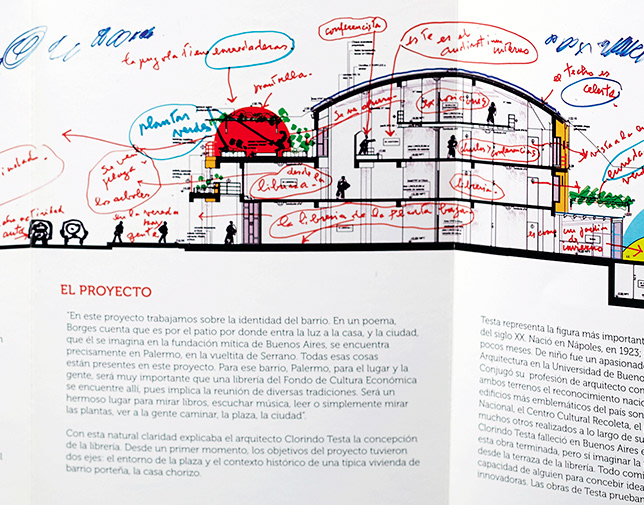 la pergola tiene enredaderas.
conferencista
este es el
auditorium
interno
pantalla.
techo es
celeste
plantas
verdes
exposiciones
se ven
los arboles
desde la
libreria.
libreria.
la libreria de la planta baja
en la vereda
hay
gente
es como un jardin
de
EL PROYECTO
"En este proyecto trabajamos sobre la identidad del barrio. En un poema,
Borges cuenta que es por el patio por donde entra la luz a la casa, y la ciudad,
que él se imagina en la fundación mítica de Buenos Aires, se encuentra
precisamente en Palermo, en la vueltita de Serrano. Todas esas cosas
están presentes en este proyecto. Para ese barrio, Palermo, para el lugar y la
gente, será muy importante que una librería del Fondo de Cultura Económica
se encuentre allí, pues implica la reunión de diversas tradiciones. Será un
hermoso lugar para mirar libros, escuchar música, leer o simplemente mirar
las plantas, ver a la gente caminar, la plaza, la ciudad".
Con esta natural claridad explicaba el arquitecto Clorindo Testa la concepción
de la librería. Desde un primer momento, los objetivos del proyecto tuvieron
dos ejes: el entorno de la plaza y el contexto histórico de una típica vivienda de
barrio porteña, la casa chorizo.
Testa representa la figura más important
del siglo XX. Nació en Nápoles, en 1923;
pocos meses. De niño fue un apasionad
Arquitectura en la Universidad de Bueno
Conjugó su profesión de arquitecto con
ambos terrenos el reconocimiento naci
edificios más emblemáticos del país son
Nacional, el Centro Cultural Recoleta, el
muchos otros realizados a lo largo de su
Clorindo Testa falleció en Buenos Aires e
esta obra terminada, pero sí imaginar la
desde la terraza de la librería. Todo comi
capacidad de alguien para concebir idea
innovadoras. Las obras de Testa prueban